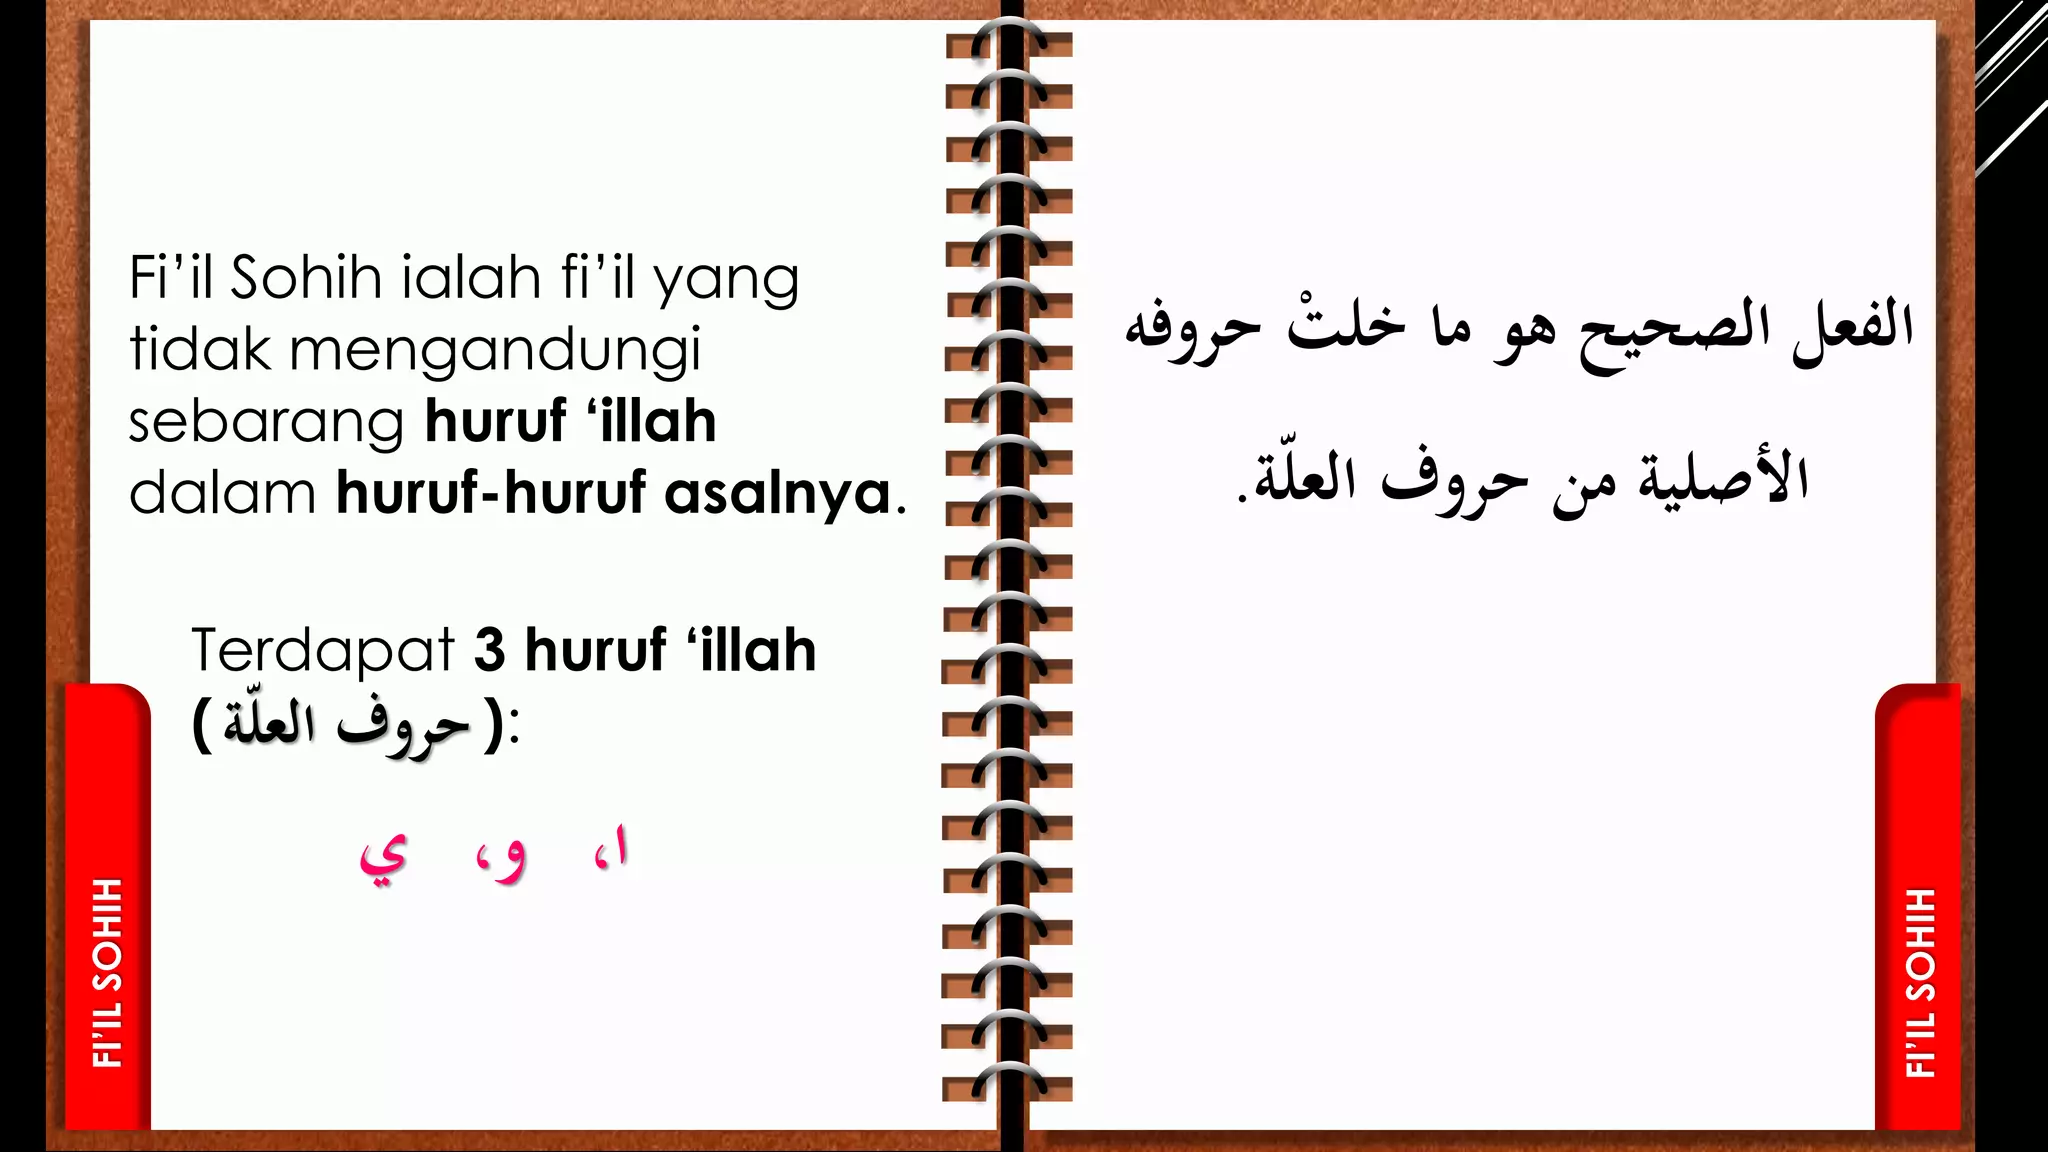 Fi’il Sohih ialah fi’il yang
tidak mengandungi
sebarang huruf ‘illah
dalam huruf-huruf asalnya.
Terdapat 3 huruf ‘illah
(حروف العلّة):
ا، و، ي
FI’IL SOHIH
الفعل الصحيح هو ما خلتْ حروفه
الأصلية من حروف العلّة.
FI’IL SOHIH